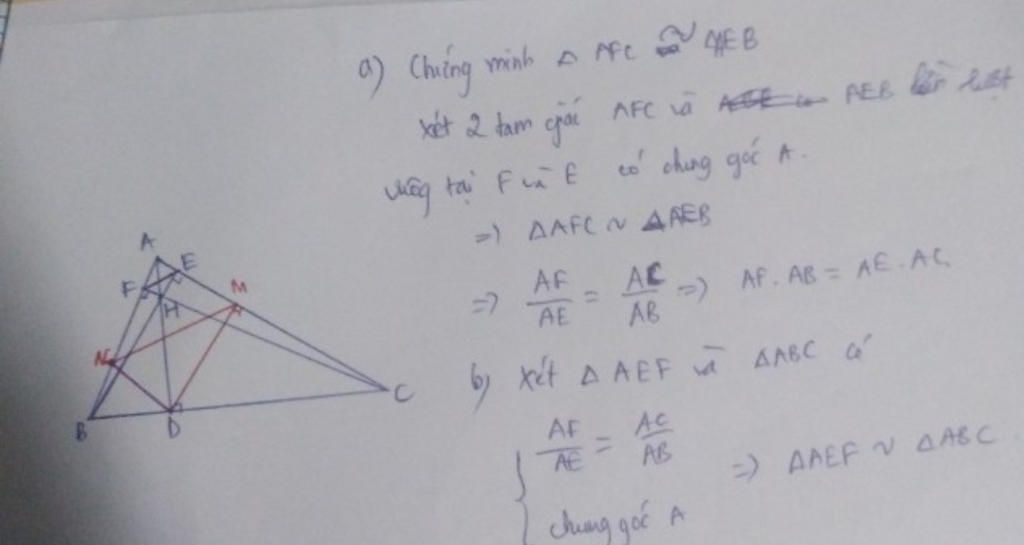 a) Chứng minh Δ AFC ∽ ΔAEB
Xét 2 tam giác AFC và AEB lần lượt
vuông tại F và E có chung góc A.
=> ΔAFC ~ ΔAEB
=> AF/AE = AC/AB => AF.AB = AE.AC.
b) Xét Δ AEF và ΔABC có
AF/AE = AC/AB
=> ΔAEF ~ ΔABC
chung góc A
A
E
F
M
H
N
C
B
D